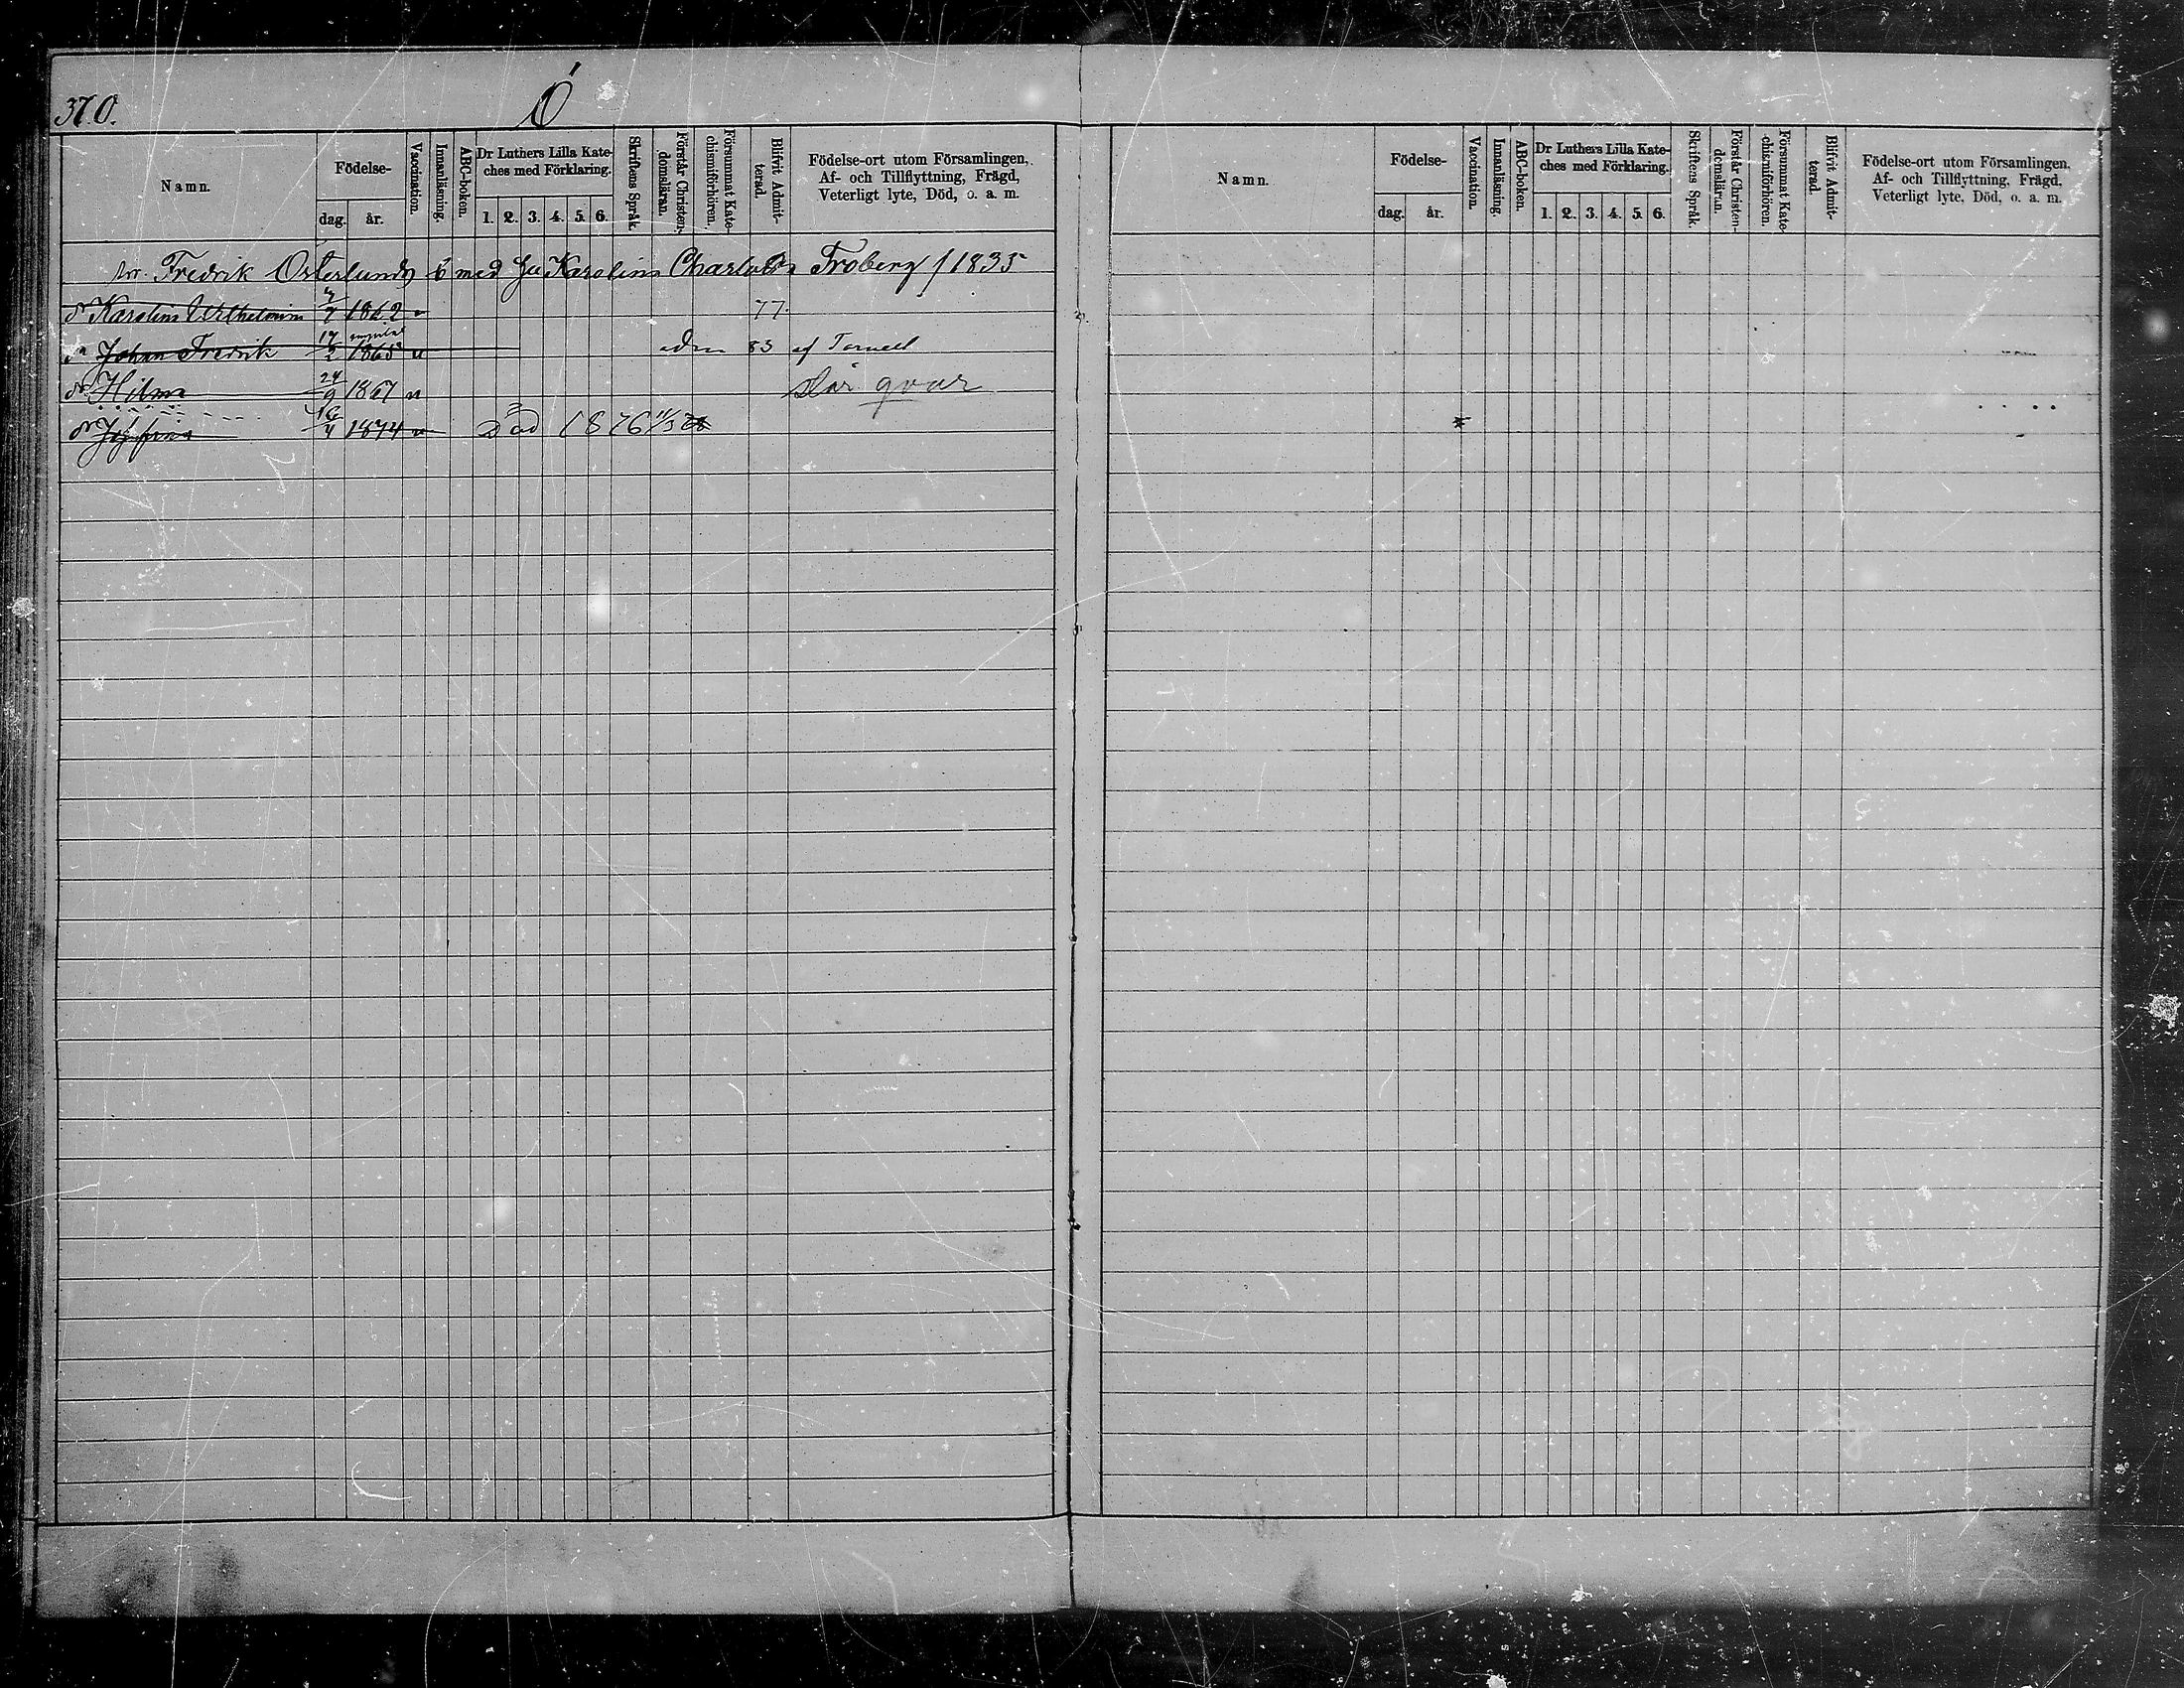 370.
Ö
Namn.
Födelse-
dag. år.
Vaccination.
Innanläsning.
ABC-boken.
Dr Luthers Lilla Kate-
ches med Förklaring.
1. 2. 3. 4. 5. 6.
Skriftens Språk.
Förstår Christen-
domsläran.
Försummat Kate-
chismiförhören.
Blifvit Admit-
terad.
Födelse-ort utom Församlingen,
Af- och Tillflyttning, Frägd,
Veterligt lyte, Död, o. a. m.
Fredrik Österlunds b med Karolina Charlotta Froberg f 1835
dr Karolina Wilhelmina 7 1862 77.
sn Johan Fredrik 17/2 1865 v adm 83 af
dr Hilma 24/9 1867 v står qvar
dr Josefina 16/4 1874 v Död 1876 11/3
Namn.
Födelse-
dag. år.
Vaccination.
Innanläsning.
ABC-boken.
Dr Luthers Lilla Kate-
ches med Förklaring.
1. 2. 3. 4. 5. 6.
Skriftens Språk.
Förstår Christen-
domsläran.
Försummat Kate-
chismiförhören.
Blifvit Admit-
terad.
Födelse-ort utom Församlingen.
Af- och Tillflyttning, Frägd,
Veterligt lyte, Död, o. a. m.